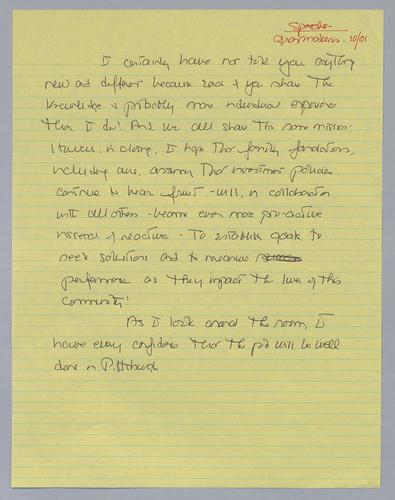 Speech
Grantmakers. 10/01
I certainly have not told you anything
new and different because each of you share the
knowledge & probably more individual experience
than I do! And we all share the same mission.
However, in closing, I hope that family foundations,
including ours, assuming their investment policies
continue to bear fruit - will, in collaboration
with all others - become even more pro-active
instead of reactive - to establish goals, to
seek solutions and to measure
performance as they impact the lives of this
community!
As I look around the room, I
have every confidence that the job will be well
done in Pittsburgh